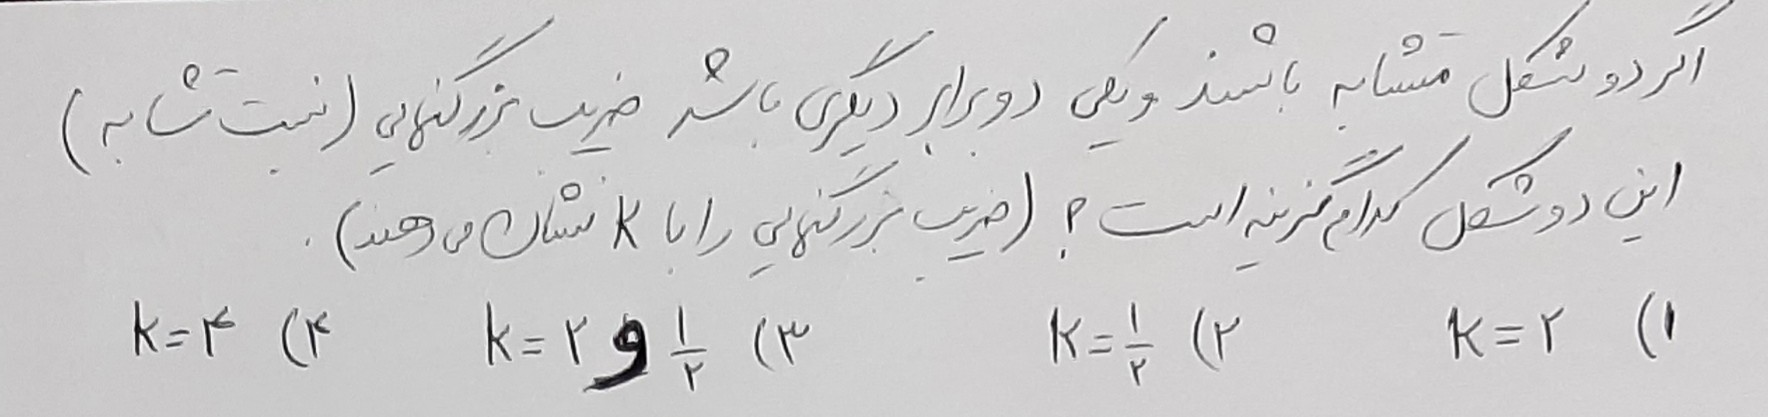 اگر دو شکل متشابه باشند و یکی دو برابر دیگری باشد ضریب بزرگنمایی (نسبت تشابه)
این دو شکل کدام گزینه است؟ (ضریب بزرگنمایی را با K نشان می دهند).
۱) K=۲ ۲) K=۱/۲ ۳) K=۲ و ۱/۲ ۴) K=۴